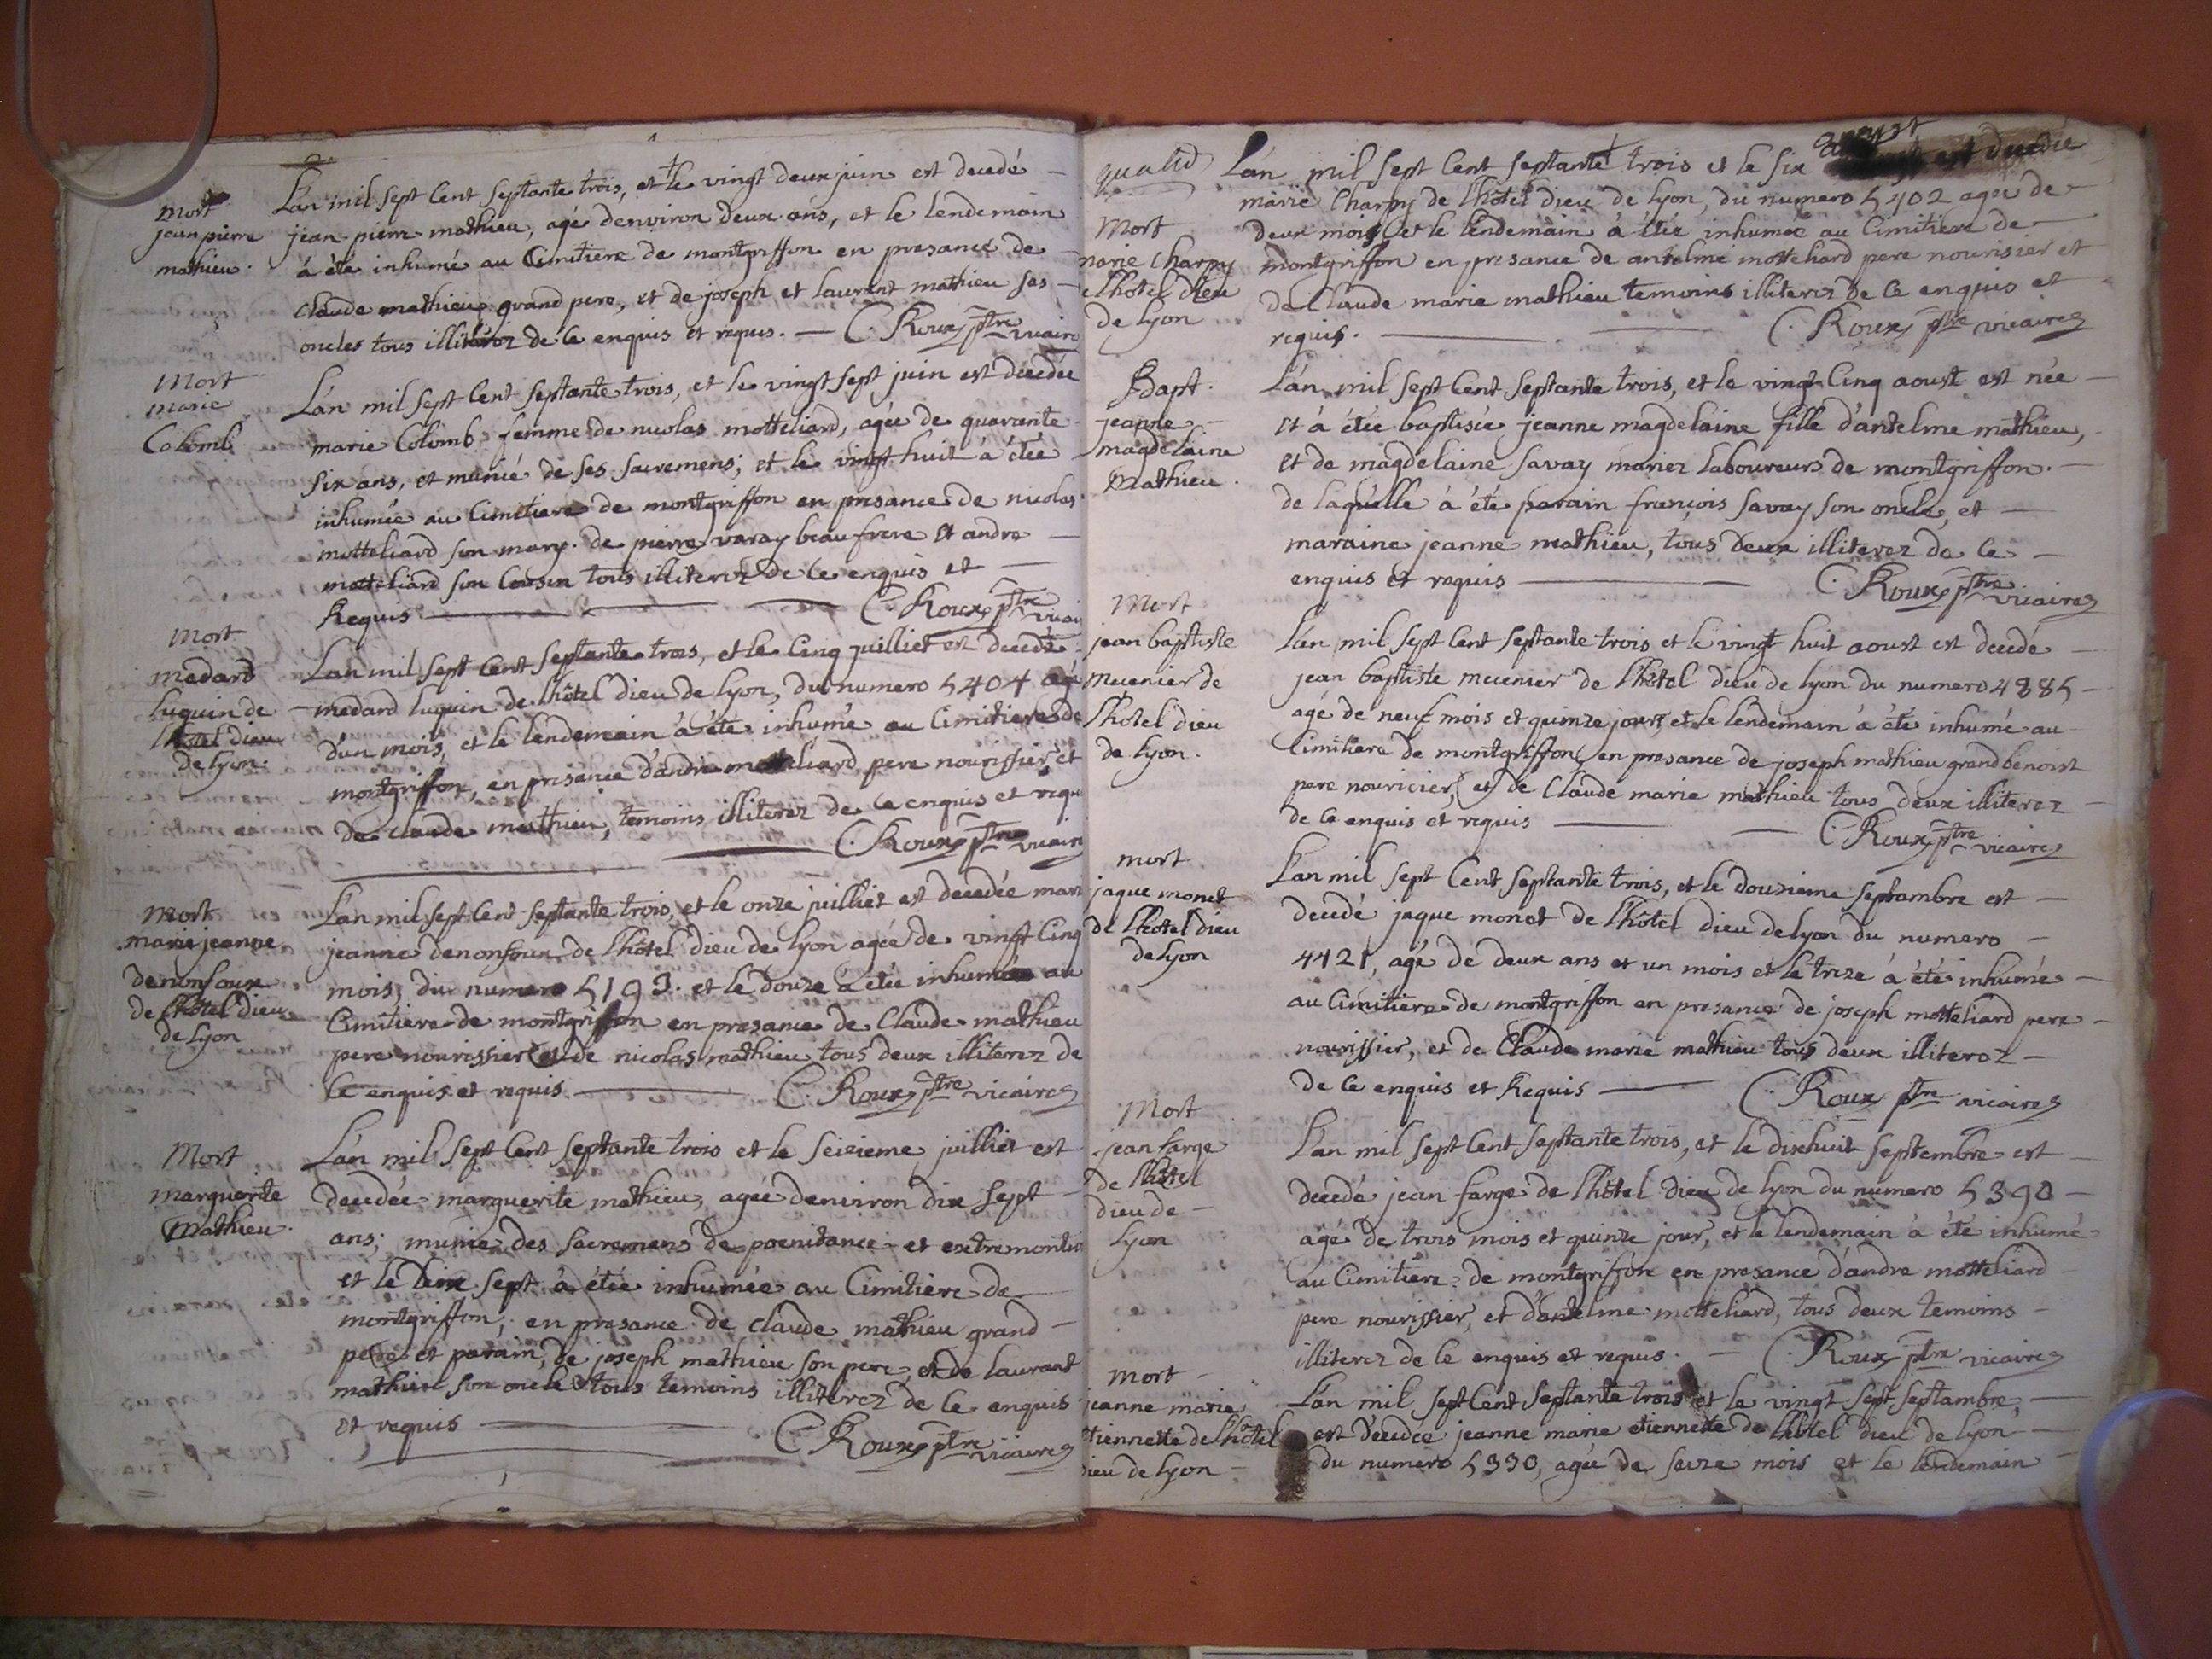 Mort
jean pierre
mathieu.
L'an mil sept Cent septante trois, et le vingt deux juin est decedé
jean pierre mathieu, agé denviron deux ans, et le lendemain
á été inhumé au Cimitiere de montgriffon en presance de
claude mathieu grand pere, et de joseph et laurant mathieu ses
oncles tous illiterez de Ce enquis et requis. — C. Roux ptre vicaire
Mort
marie
Colomb
L'an mil sept Cent septante trois, et le vingt sept juin est decedée
marie Colomb femme de nicolas motteliard, agée de quarante
six ans, et munie de ses sacremens; et le vingt huit á étée
inhumée au Cimitiere de montgriffon en presance de nicolas
motteliard son mary. de pierre varay beau frere et andre
motteliard son Cousin tous illiterez de Ce enquis et
Requis — C. Roux ptre vicai
Mort
medard
luquin de
lhotel dieu
de lyon.
L'an mil sept Cent septante trois, et le Cinq juilliet est decedé
medard luquin de lhôtel dieu de lyon, du numero 5404 agé
d'un mois, et le lendemain á été inhumé au Cimitiere de
montgriffon, en presance d'andre motteliard pere nourissier et
de claude mathieu, temoins illiterez de Ce enquis et requ
C. Roux ptre vicaire
Mort
marie jeanne
denonfoux
de lhôtel dieu
de lyon
L'an mil sept Cent septante trois, et le onze juilliet est decedée mari
jeanne denonfoux de lhôtel dieu de lyon agée de vingt Cinq
mois, du numero 5193. et le douze á étée inhumée au
Cimitiere de montgriffon en presance de Claude mathieu
pere nourissier et de nicolas mathieu tous deux illiterez de
Ce enquis et requis — C. Roux ptre vicaire
Mort
marguerite
Mathieu.
L'an mil sept Cent septante trois et le seizieme juilliet est
decedée marguerite mathieu, agée denviron dix sept
ans; munie des sacremens de poenitance et extremontio
et le dix sept á étée inhumée au Cimitiere de
montgriffon, en presance de claude mathieu grand
pere et parain, de joseph mathieu son pere, et de laurant
mathieu son oncle tous temoins illiterez de Ce enquis
et requis — C. Roux ptre vicaire
aoust
L'an mil sept Cent septante trois et le six est decedée
Mort
marie Charpy
lhotel dieu
de lyon
marie Charpy de lhôtel dieu de lyon, du numero 5402 agée de
deux mois et le lendemain á étée inhumée au Cimitiere de
montgriffon en presance de antelme motteliard pere nourissier et
de Claude marie mathieu temoins illiterez de Ce enquis et
requis. — C. Roux ptre vicaire
Bapt.
jeanne
magdelaine
Mathieu.
L'an mil sept Cent septante trois, et le vingt Cinq aoust est née
et á étée baptisée jeanne magdelaine fille d'antelme mathieu,
et de magdelaine savay mariez laboureurs de montgriffon.
de laquelle á été parain françois savay son oncle, et
maraine jeanne mathieu, tous deux illiterez de Ce
enquis et requis — C. Roux ptre vicaire
Mort
jean baptiste
meunier de
lhotel dieu
de lyon.
L'an mil sept Cent septante trois et le vingt huit aoust est decedé
jean baptiste meunier de lhôtel dieu de lyon du numero 4885
agé de neuf mois et quinze jours, et le lendemain á été inhumé au
Cimitiere de montgriffon, en presance de joseph mathieu grand benoist
pere nouricier, et de Claude marie mathieu tous deux illiterez
de Ce enquis et requis — C. Roux ptre vicaire
mort
jaque monet
de lhôtel dieu
de lyon
L'an mil sept Cent septante trois, et le douzieme septambre est
decedé jaque monet de lhôtel dieu de lyon du numero
4421, agé de deux ans et un mois et le treze á été inhumé
au Cimitiere de montgriffon en presance de joseph motteliard pere
nourissier, et de Claude marie mathieu tous deux illiterez
de Ce enquis et Requis — C. Roux ptre vicaire
Mort
jean farge
de lhôtel
dieu de
lyon
L'an mil sept Cent septante trois, et le dixhuit septembre est
decedé jean farge de lhôtel dieu de lyon du numero 5390
agé de trois mois et quinze jour, et le lendemain á été inhumé
au Cimitiere de montgriffon en presance d'andre motteliard
pere nourissier, et d'antelme motteliard, tous deux temoins
illiterez de Ce enquis et requis. — C. Roux ptre vicaire
mort
jeanne marie
etiennette de lhôtel
dieu de lyon
L'an mil sept Cent septante trois et le vingt sept septambre,
est decedée jeanne marie etiennette de lhôtel dieu de lyon
du numero 5330, agée de seize mois et le lendemain